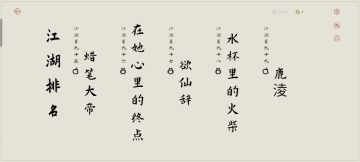 江湖排名
江湖第九十五
蜡笔大帝
江湖第九十六
在她心里的终点
江湖第九十七
欲仙辞
江湖第九十八
水杯里的火柴
江湖第九十九
鹿淩